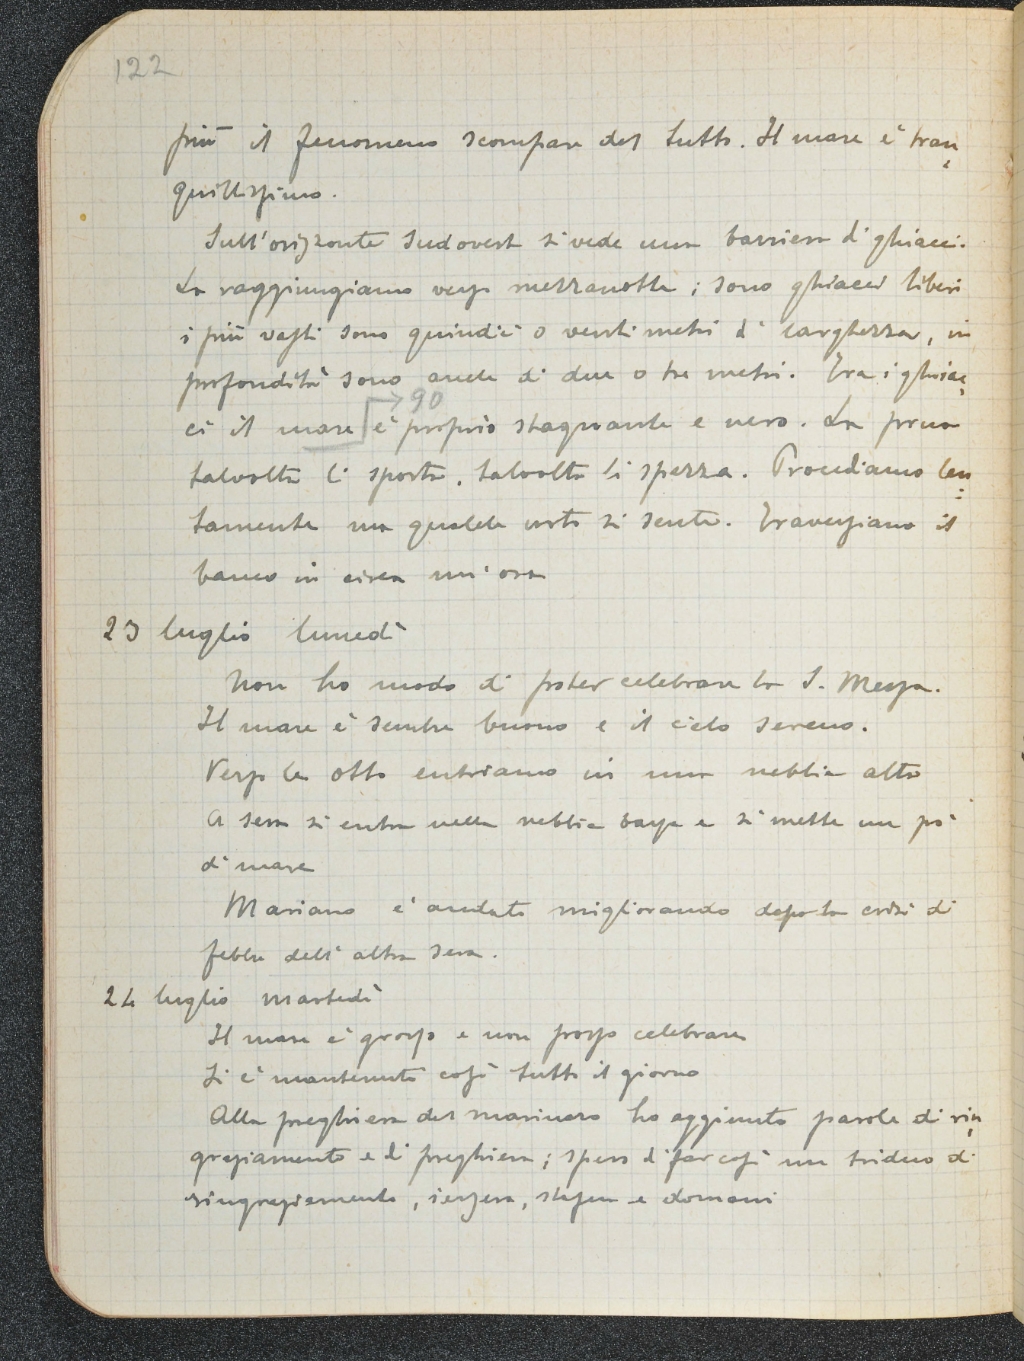 122
più il fenomeno scompare del tutto. Il mare è tran
quillissimo.
Sull'orizzonte Sud ovest si vede una barriera di ghiacci.
La raggiungiamo verso mezzanotte; sono ghiacci liberi
i più vasti sono quindici o venti metri di larghezza, in
profondità sono anche di due o tre metri. Tra i ghiac
→ 90
ci il mare è proprio stagnante e nero. La prua
talvolta li sposta, talvolta li spezza. Procediamo len
tamente ma qualche urto si sente. Traversiamo il
banco in circa un'ora
23 luglio lunedì
Non ho modo di poter celebrare la S. Messa.
Il mare è sempre buono e il cielo sereno.
Verso le otto entriamo in una nebbia alta
A sera si entra nella nebbia bassa e si mette un po'
di mare
Mariano è andato migliorando dopo la crisi di
febbre dell'altra sera.
24 luglio martedì
Il mare è grosso e non posso celebrare
Si è mantenuto così tutto il giorno
Alla preghiera del marinaro ho aggiunto parole di rin
graziamento e di preghiera; spero di far così un triduo di
ringraziamento, iersera, stasera e domani